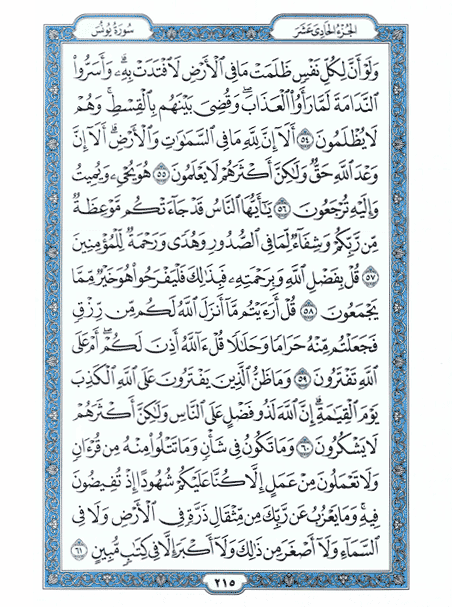 سُورَةُ يُونُسَ
الجُزءُ الحَادِي عَشَرَ
وَلَوْ أَنَّ لِكُلِّ نَفْسٍ ظَلَمَتْ مَا فِي ٱلْأَرْضِ لَٱفْتَدَتْ بِهِۦۗ وَأَسَرُّوا۟
ٱلنَّدَامَةَ لَمَّا رَأَوُا۟ ٱلْعَذَابَۖ وَقُضِىَ بَيْنَهُم بِٱلْقِسْطِۚ وَهُمْ
لَا يُظْلَمُونَ ٥٤ أَلَآ إِنَّ لِلَّهِ مَا فِي ٱلسَّمَٰوَٰتِ وَٱلْأَرْضِۗ أَلَآ إِنَّ
وَعْدَ ٱللَّهِ حَقٌّ وَلَٰكِنَّ أَكْثَرَهُمْ لَا يَعْلَمُونَ ٥٥ هُوَ يُحْىِۦ وَيُمِيتُ
وَإِلَيْهِ تُرْجَعُونَ ٥٦ يَٰٓأَيُّهَا ٱلنَّاسُ قَدْ جَآءَتْكُم مَّوْعِظَةٌ
مِّن رَّبِّكُمْ وَشِفَآءٌ لِّمَا فِي ٱلصُّدُورِ وَهُدًى وَرَحْمَةٌ لِّلْمُؤْمِنِينَ
٥٧ قُلْ بِفَضْلِ ٱللَّهِ وَبِرَحْمَتِهِۦ فَبِذَٰلِكَ فَلْيَفْرَحُوا۟ هُوَ خَيْرٌ مِّمَّا
يَجْمَعُونَ ٥٨ قُلْ أَرَءَيْتُم مَّآ أَنزَلَ ٱللَّهُ لَكُم مِّن رِّزْقٍ
فَجَعَلْتُم مِّنْهُ حَرَامًا وَحَلَٰلًا قُلْ ءَآللَّهُ أَذِنَ لَكُمْۖ أَمْ عَلَى
ٱللَّهِ تَفْتَرُونَ ٥٩ وَمَا ظَنُّ ٱلَّذِينَ يَفْتَرُونَ عَلَى ٱللَّهِ ٱلْكَذِبَ
يَوْمَ ٱلْقِيَٰمَةِۗ إِنَّ ٱللَّهَ لَذُو فَضْلٍ عَلَى ٱلنَّاسِ وَلَٰكِنَّ أَكْثَرَهُمْ
لَا يَشْكُرُونَ ٦٠ وَمَا تَكُونُ فِي شَأْنٍ وَمَا تَتْلُوا۟ مِنْهُ مِن قُرْءَانٍ
وَلَا تَعْمَلُونَ مِنْ عَمَلٍ إِلَّا كُنَّا عَلَيْكُمْ شُهُودًا إِذْ تُفِيضُونَ
فِيهِۚ وَمَا يَعْزُبُ عَن رَّبِّكَ مِن مِّثْقَالِ ذَرَّةٍ فِي ٱلْأَرْضِ وَلَا فِي
ٱلسَّمَآءِ وَلَآ أَصْغَرَ مِن ذَٰلِكَ وَلَآ أَكْبَرَ إِلَّا فِي كِتَٰبٍ مُّبِينٍ ٦١
٢١٥